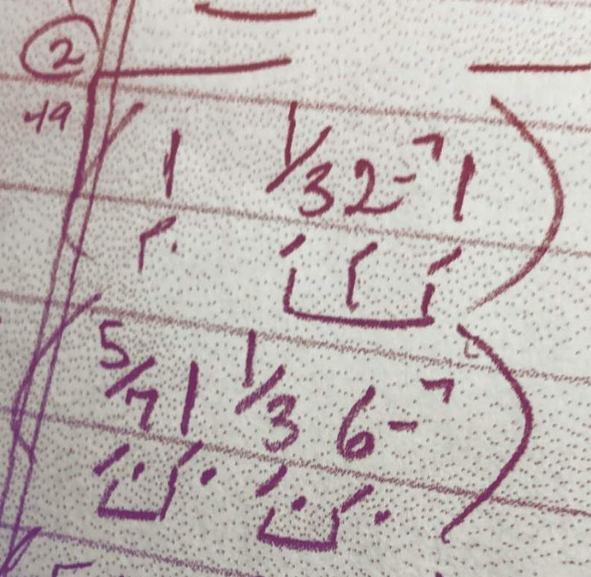 2
49
1 1/3 2-7 1
5/7 1 1/3 6-7